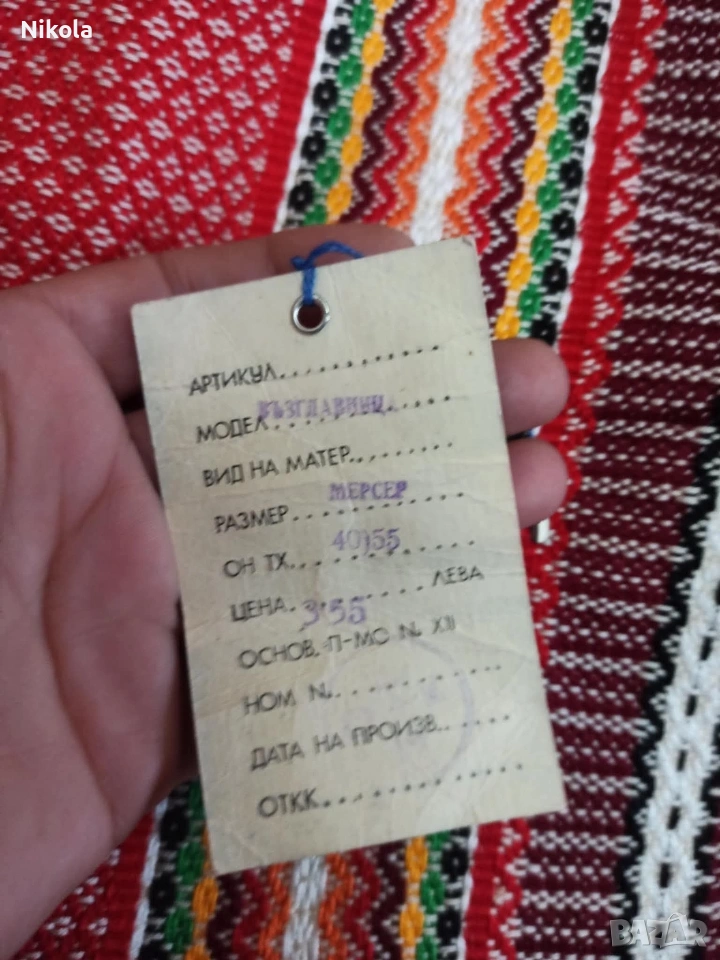 Nikola
АРТИКУЛ............
МОДЕЛ ВЪЗГЛАВНИЦА
ВИД НА МАТЕР.........
РАЗМЕР МЕРСЕР
ОН ТХ. 40/55
ЦЕНА. 3'55 ЛЕВА
ОСНОВ. П-МО N XII
НОМ N............
ДАТА НА ПРОИЗВ.......
ОТКК...............
BAZAR